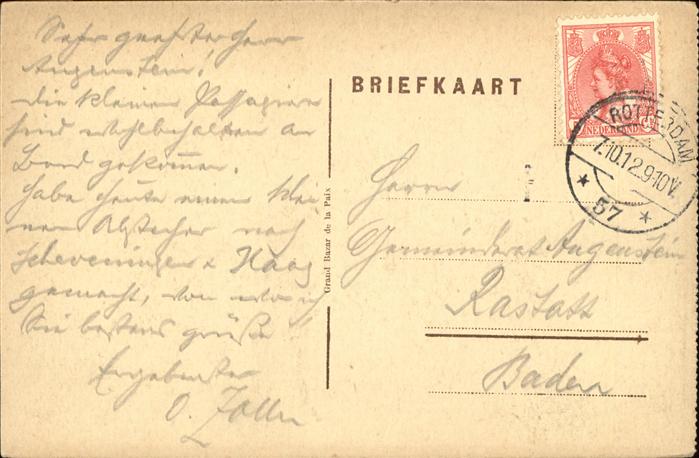 Sehr geehrter Herr
Augenstein!
Die kleinen Passagiere
sind wohlbehalten an
Bord gekommen.
Habe heute einen klei-
nen Abstecher nach
Scheveningen & Haag
gemacht, von wo ich
Sie bestens grüße
Ergebenster
O. Zoller
Grand Bazar de la Paix
BRIEFKAART
NEDERLAND
ROTTERDAM
7.10.12.9-10V.
* 57 *
Herrn
Gemeinderat Augenstein
Rastatt
Baden